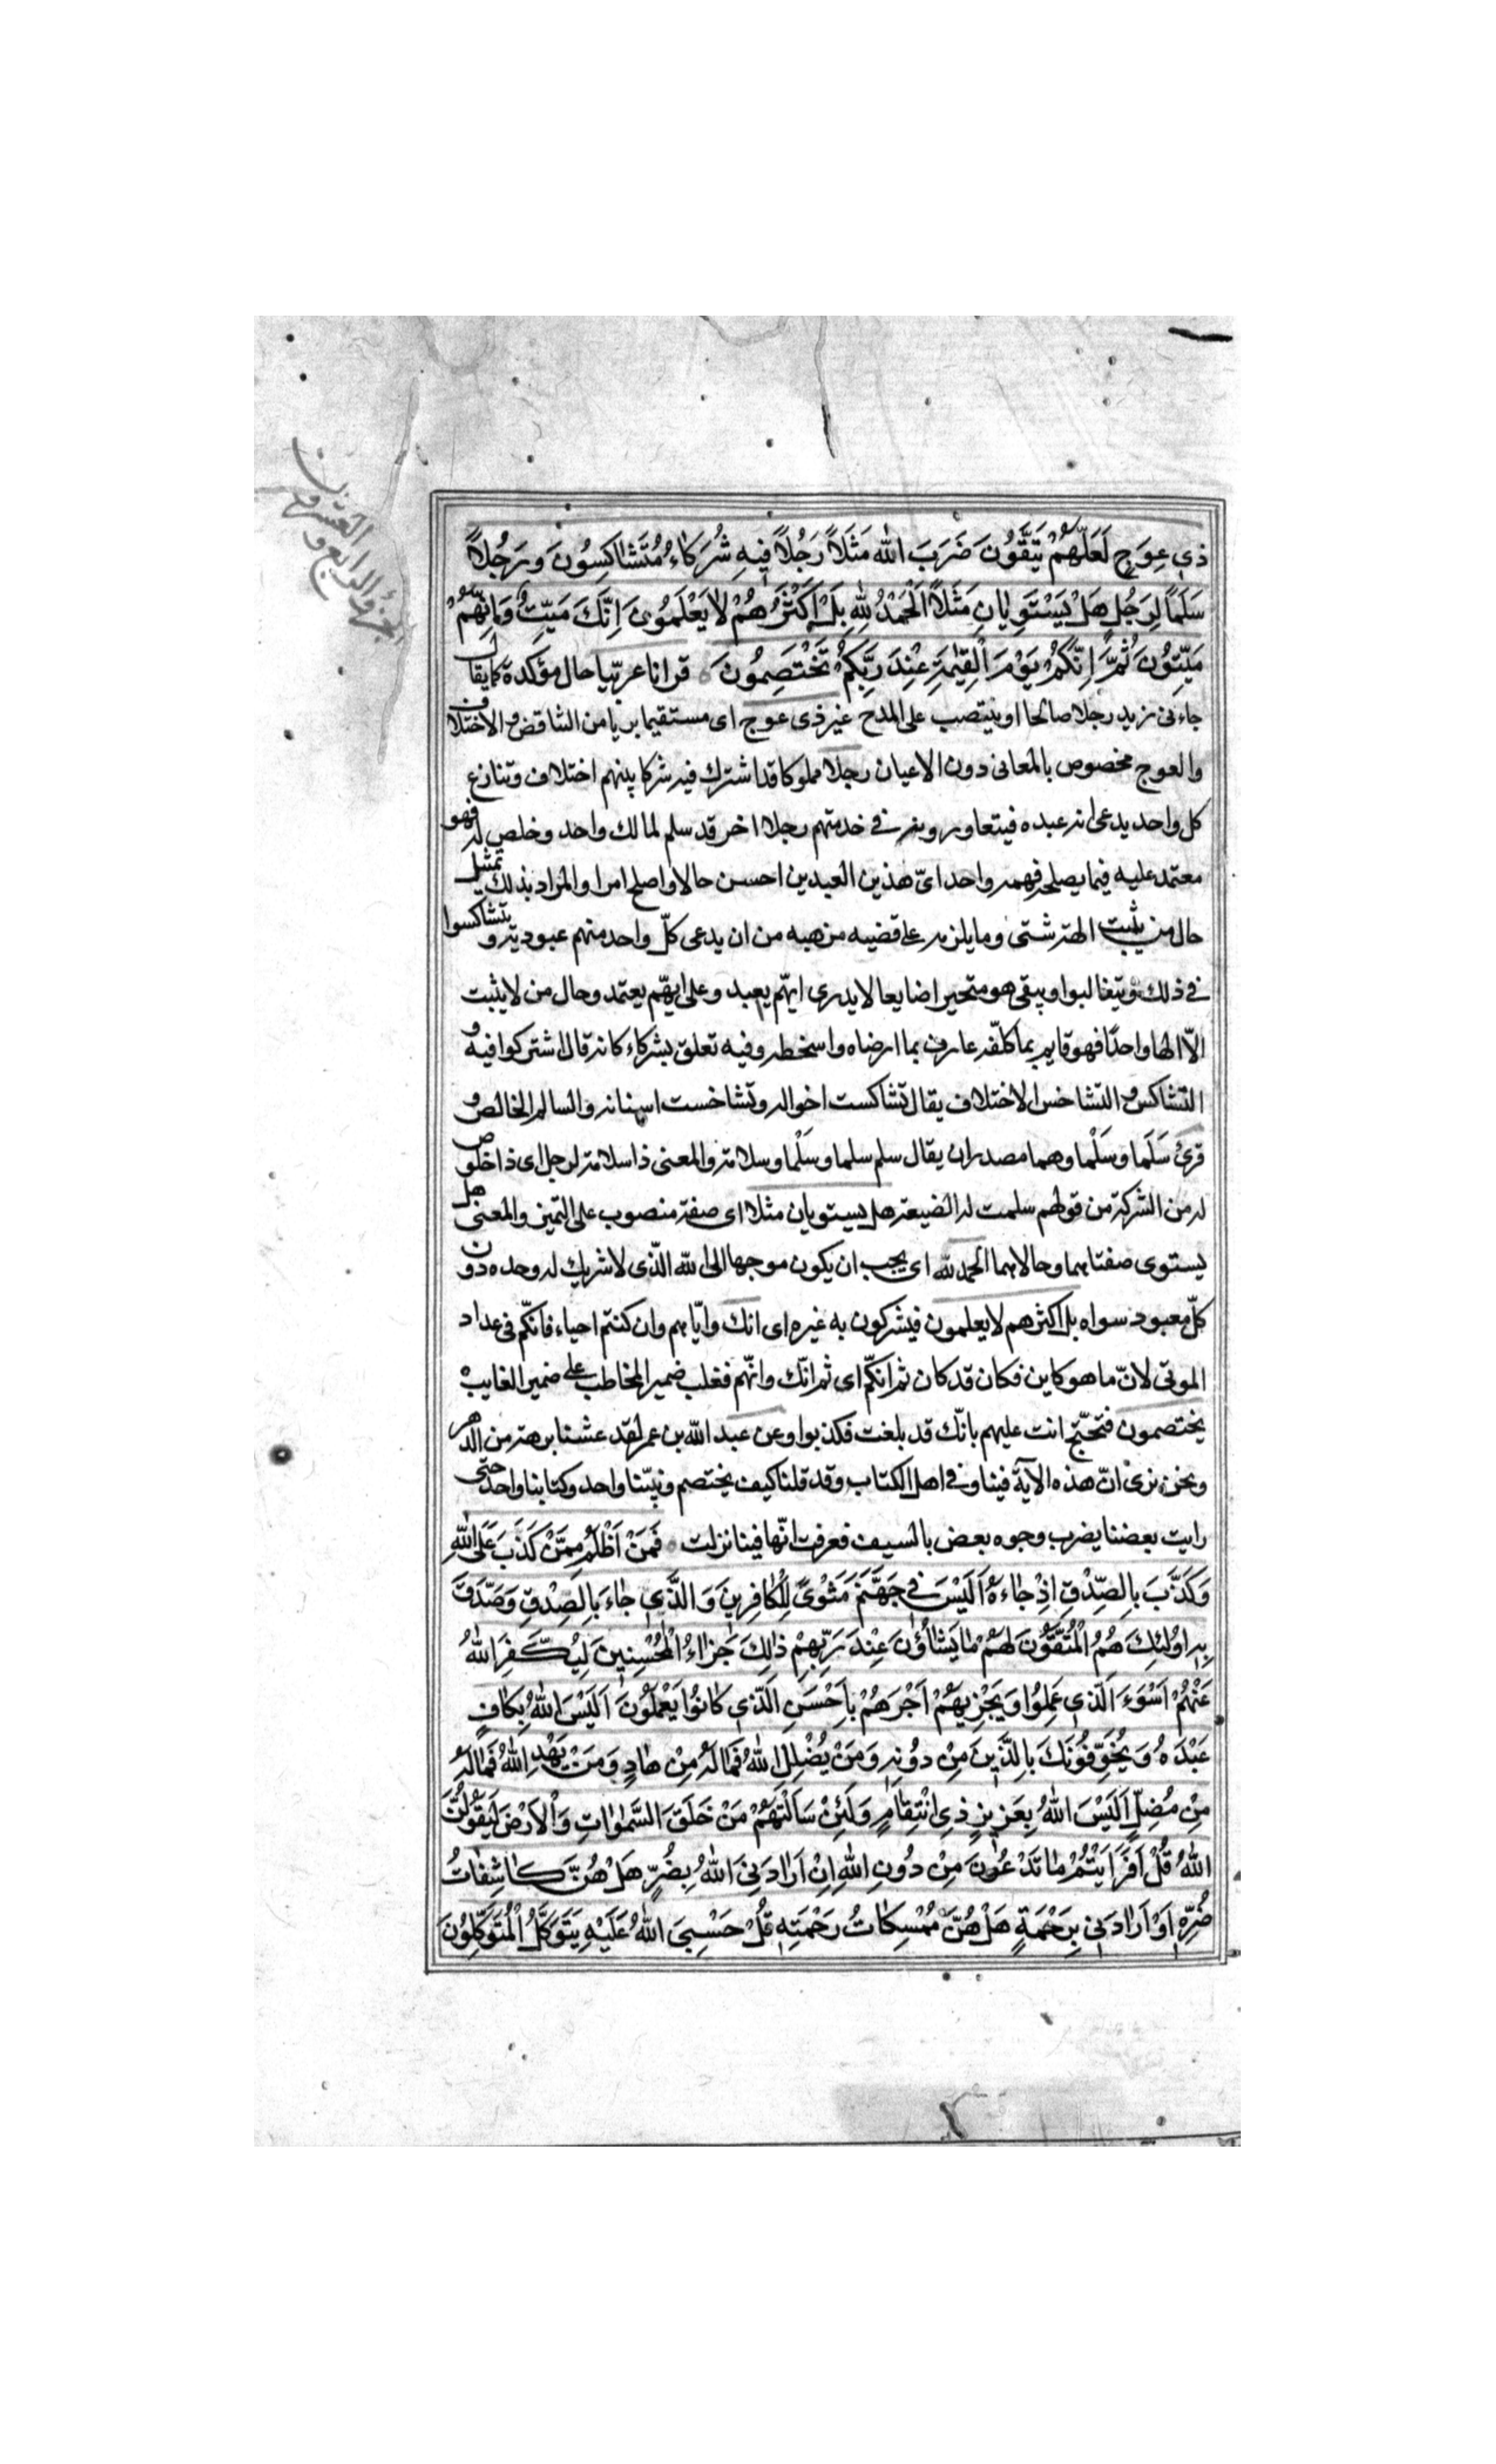 ذي عِوَجٍ لَعَلَّهُمْ يَتَّقُونَ ضَرَبَ اللّٰه مَثَلاً رَجُلاً فِيهِ شُرَكٰاءُ مُتَشٰاكِسُونَ وَرَجُلاً
سَلَماً لِرَجُلٍ هَلْ يَسْتَوِيٰانِ مَثَلاً اَلْحَمْدُ لِلّٰهِ بَلْ اَكْثَرُهُمْ لاٰ يَعْلَمُونَ اِنَّكَ مَيِّتٌ وَاِنَّهُمْ
مَيِّتُونَ ثُمَّ اِنَّكُمْ يَوْمَ الْقِيٰمَةِ عِنْدَ رَبِّكُمْ تَخْتَصِمُونَ قرانا عربيّا حال مؤكدة كما يقال
جاءنى زيد رجلا صالحا او ينتصب على المدح غير ذى عوج اى مستقيما بريا من التناقض و الاختلاف
والعوج مخصوص بالمعانى دون الاعيان رجلا مملوكا قد اشترك فيه شركا بينهم اختلاف وتنازع
كل واحد يدعى انه عبده فيتعاورونه فى خدمتهم رجلا اخر قد سلم لمالك واحد وخلص له فهو
معتمد عليه فيما يصلحه فهمه واحد اىّ هذين العبدين احسن حالا واصلح امرا والمراد بذلك تمثيل
حال من يثبت الهة شتى وما يلزمه على قضيه مذهبه من ان يدعى كلّ واحد منهم عبوديته ويتشاكسوا
فى ذلك ويتغالبوا ويبقى هو متحيرا ضايعا لا يدرى ايّهم يعبد وعلى ايّهم يعتمد وحال من لا يثبت
الاّ الها واحدًا فهو قايم بما كلفّه عارف بما ارضاه واسخطه وفيه تعلق بشركاء كانه قال اشتركوا فيه و
التشاكس و التشاخس الاختلاف يقال تشاكست احواله وتشاخست اسنانه والسالم الخالص و
قرئ سَلَما وسَلْما وهما مصدران يقال سلم سلما وسَلْما وسلامة والمعنى ذا سلامة لرجل اى ذا خلوص
له من الشركة من قولهم سلمت له الضيعة هل يستويان مثلا اى صفة منصوب على التميز والمعنى هل
يستوى صفتاهما وحالاهما الحمد لله اى يجب ان يكون موجها الى الله الّذى لا شريك له وحده دون
كلّ معبود سواه بل اكثرهم لا يعلمون فيشركون به غيره اى انك وايّاهم وان كنتم احياء فانكّم فى عداد
الموتى لانّ ما هو كاين فكان قد كان ثم انكّم اى ثم انّك وانّهم فغلب ضمير المخاطب على ضمير الغايب
يختصمون فتحتّج انت عليهم بانّك قد بلغت فكذبوا وعن عبد اللّه بن عمر لقد عشنا برهة من الدهر
ونحن نرى انّ هذه الآية فينا وفى اهل الكتاب وقد قلنا كيف يختصم ونبيّنا واحد وكتابنا واحد حتى
رايت بعضنا يضرب وجوه بعض بالسيف فعرفت انّها فينا نزلت فَمَنْ اَظْلَمُ مِمَّنْ كَذَبَ عَلَى اللّٰهِ
وَكَذَّبَ بِالصِّدْقِ اِذْ جٰاءَهُ اَلَيْسَ فِي جَهَنَّمَ مَثْوىً لِلْكٰافِرِينَ وَالَّذِي جٰاءَ بِالصِّدْقِ وَصَدَّقَ
بِهِ اُولٰئِكَ هُمُ الْمُتَّقُونَ لَهُمْ مٰا يَشٰاؤُنَ عِنْدَ رَبِّهِمْ ذٰلِكَ جَزٰاءُ الْمُحْسِنِينَ لِيُكَفِّرَ اللّٰهُ
عَنْهُمْ اَسْوَءَ الَّذِي عَمِلُوا وَيَجْزِيَهُمْ اَجْرَهُمْ بِاَحْسَنِ الَّذِي كٰانُوا يَعْمَلُونَ اَلَيْسَ اللّٰهُ بِكٰافٍ
عَبْدَهُ وَيُخَوِّفُونَكَ بِالَّذِينَ مِنْ دُونِهِ وَمَنْ يُضْلِلِ اللّٰهُ فَمٰا لَهُ مِنْ هٰادٍ وَمَنْ يَهْدِ اللّٰهُ فَمٰا لَهُ
مِنْ مُضِلٍّ اَلَيْسَ اللّٰهُ بِعَزِيزٍ ذِي انْتِقٰامٍ وَلَئِنْ سَاَلْتَهُمْ مَنْ خَلَقَ السَّمٰوٰاتِ وَالْاَرْضَ لَيَقُولُنَّ
اللّٰهُ قُلْ اَفَرَاَيْتُمْ مٰا تَدْعُونَ مِنْ دُونِ اللّٰهِ اِنْ اَرٰادَنِيَ اللّٰهُ بِضُرٍّ هَلْ هُنَّ كٰاشِفٰاتُ
ضُرِّهِ اَوْ اَرٰادَنِي بِرَحْمَةٍ هَلْ هُنَّ مُمْسِكٰاتُ رَحْمَتِهِ قُلْ حَسْبِيَ اللّٰهُ عَلَيْهِ يَتَوَكَّلُ الْمُتَوَكِّلُونَ
الجزؤ الرابع و
العشرون